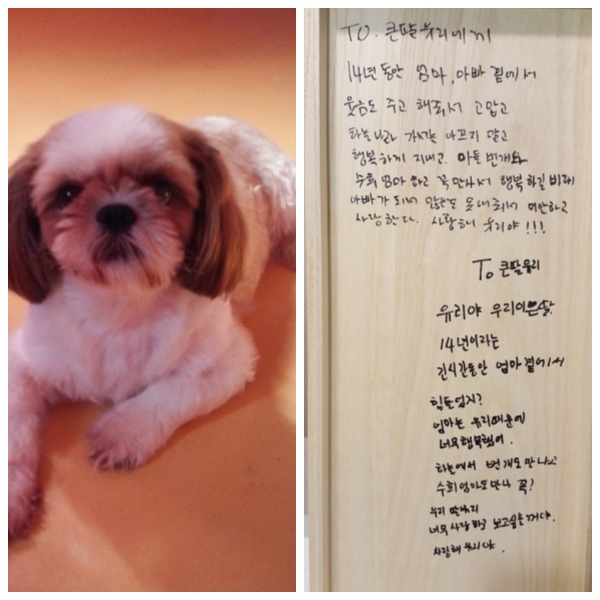 TO. 큰딸 유리에게
14년 동안 엄마, 아빠 곁에서
웃음도 주고 해줘서 고맙고
하늘나라 가서는 아프지 말고
행복하게 지내고 아들 번개와
수희 엄마 하고 꼭 만나서 행복하길 바래
아빠가 되서 많은도 못해줘서 미안하고
사랑한다. 사랑해 유리야!!!
To 큰딸유리
유리야 우리이쁜딸.
14년이라는
긴시간동안 엄마곁에서
힘들었지?
엄마는 유리때문에
너무행복했어.
하늘에서 번개도 만나고
수희엄마도만나 꼭?
우리 딸유리
너무사랑하고 보고싶을꺼야.
사랑해 유리야.